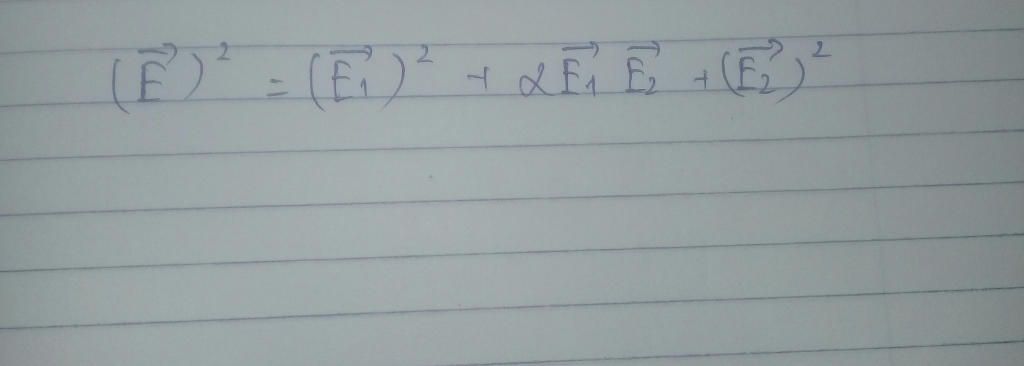 (E⃗)² = (E⃗₁)² + 2E⃗₁ E⃗₂ + (E⃗₂)²